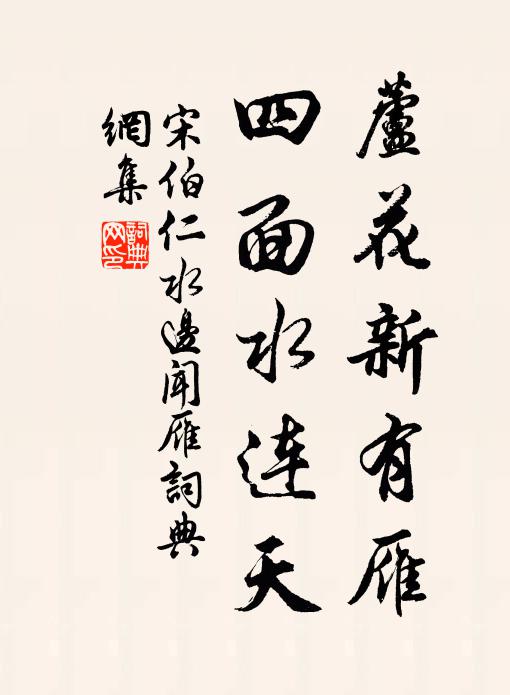 蘆花新有雁
四面水连天
宋伯仁水邊闻雁詞典
網集
詞典
网印